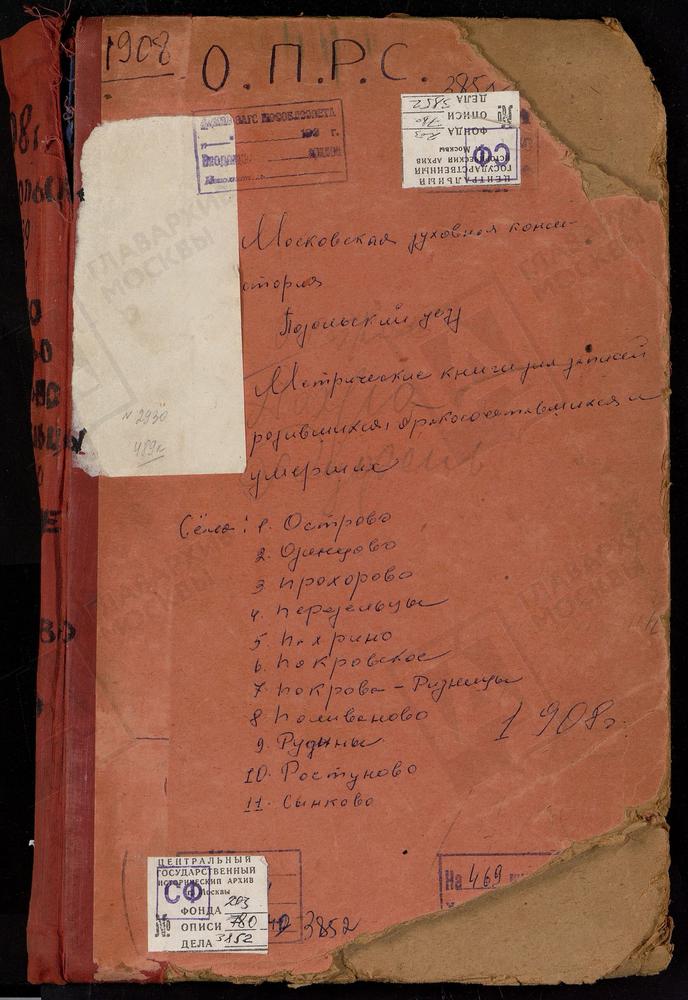 1908
О.П.Р.С.
3852
ЗАГС МОСОБЛСОВЕТА
193 г.
№
ДЕЛА 3852
ОПИСИ 780
ФОНДА 203
СФ
г. Москвы
ИСТОРИЧЕСКИЙ АРХИВ
ГОСУДАРСТВЕННЫЙ
ЦЕНТРАЛЬНЫЙ
ГЛАВАРХИВ
МОСКВЫ
Московская духовная конси-
стория
Подольский уезд
Метрические книги для записей
родившихся, бракосочетавшихся и
умерших
N 2930
489л
Сёла: 1. Острово
2. Одинцово
3 Прохорово
4. Передельцы
5. Пахрино
6. Покровское
7 Покрова – Ризницы
8 Поливаново
9. Рудины
10. Ростуново
11. Сынково
1908г.
ЦЕНТРАЛЬНЫЙ
ГОСУДАРСТВЕННЫЙ
ИСТОРИЧЕСКИЙ АРХИВ
г. Москвы
СФ
ФОНДА 203
№ ОПИСИ 780
ДЕЛА 3852
3852
На 469